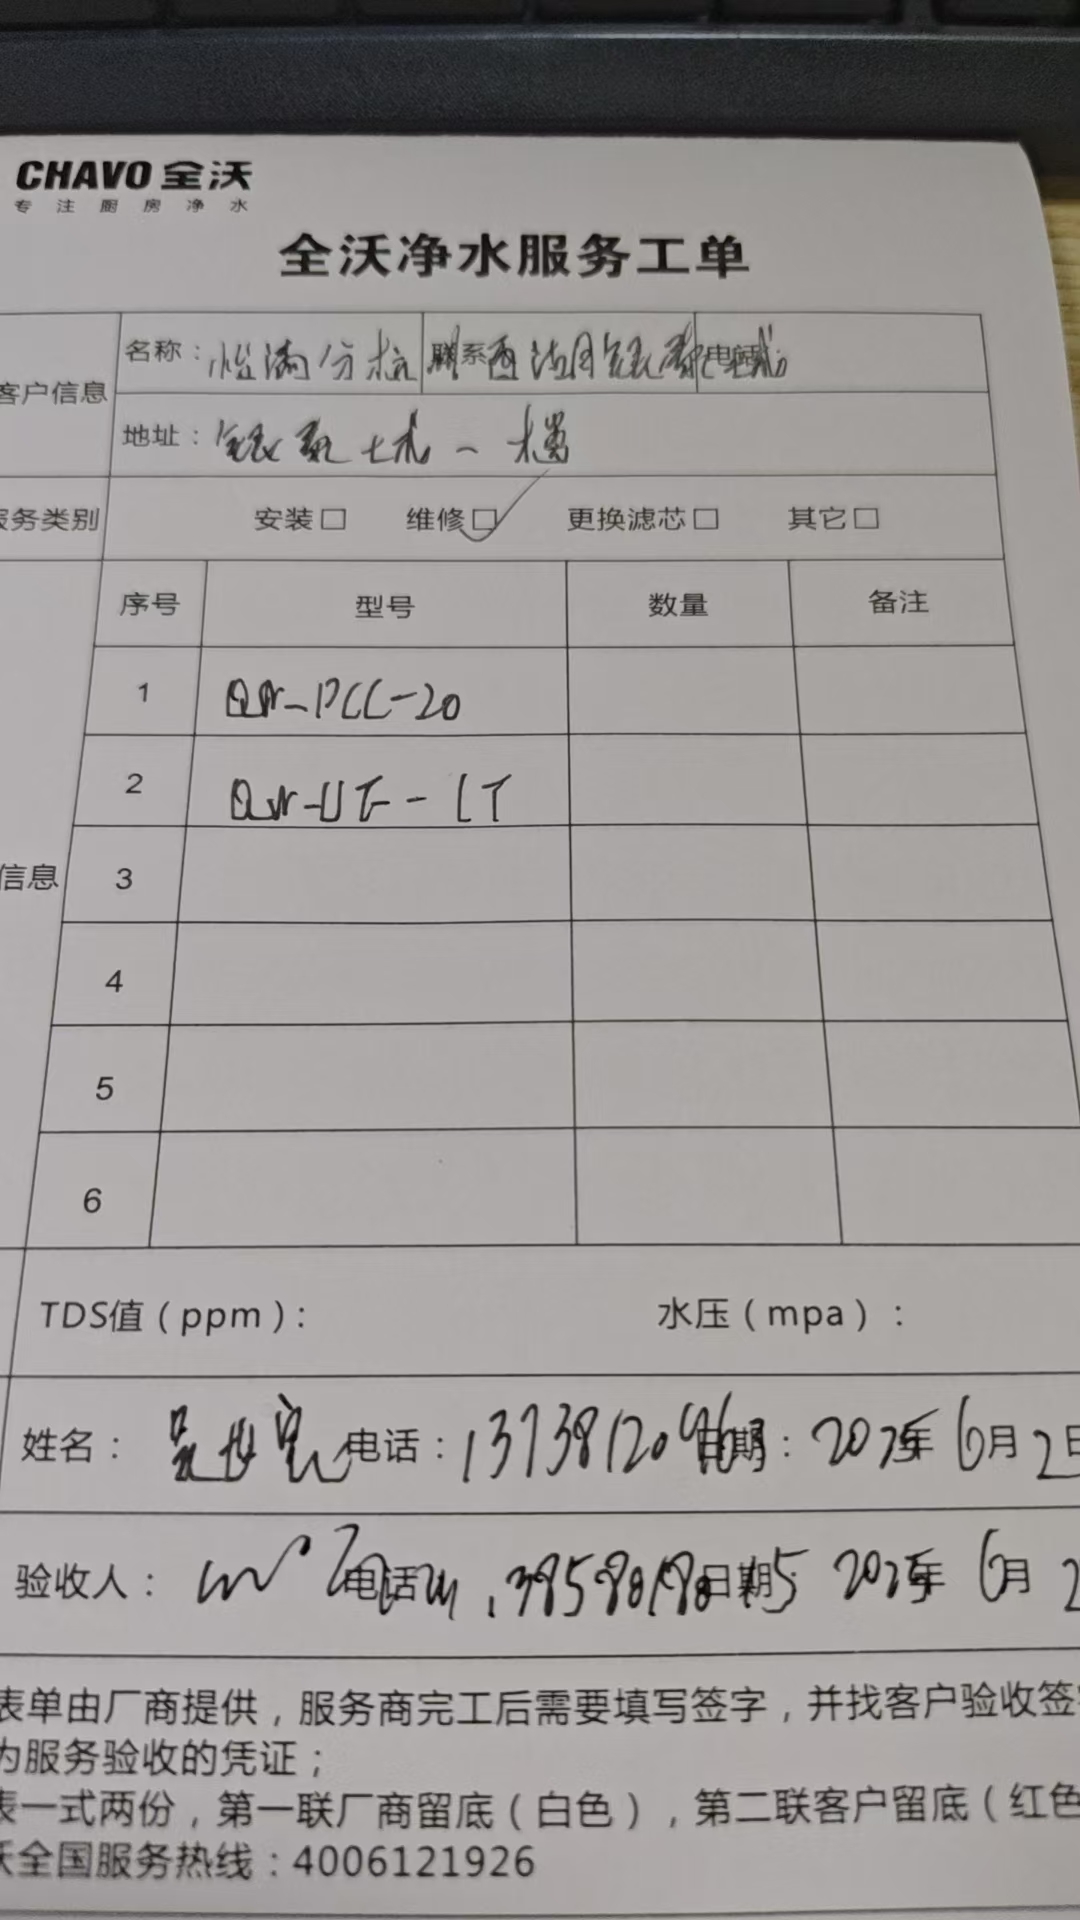 CHAVO 全沃
专注厨房净水
全沃净水服务工单
客户信息
名称： 联系 电话
地址： 一楼
服务类别 安装□ 维修□ 更换滤芯□ 其它□
序号 型号 数量 备注
1 QN-PCC-20
2 QW-UF-LT
信息 3
4
5
6
TDS值（ppm）： 水压（mpa）：
姓名： 电话： 日期：2025年 6月 2日
验收人： 电话 日期 2025年 6月 2
表单由厂商提供，服务商完工后需要填写签字，并找客户验收签字
为服务验收的凭证；
表一式两份，第一联厂商留底（白色），第二联客户留底（红色
沃全国服务热线：4006121926